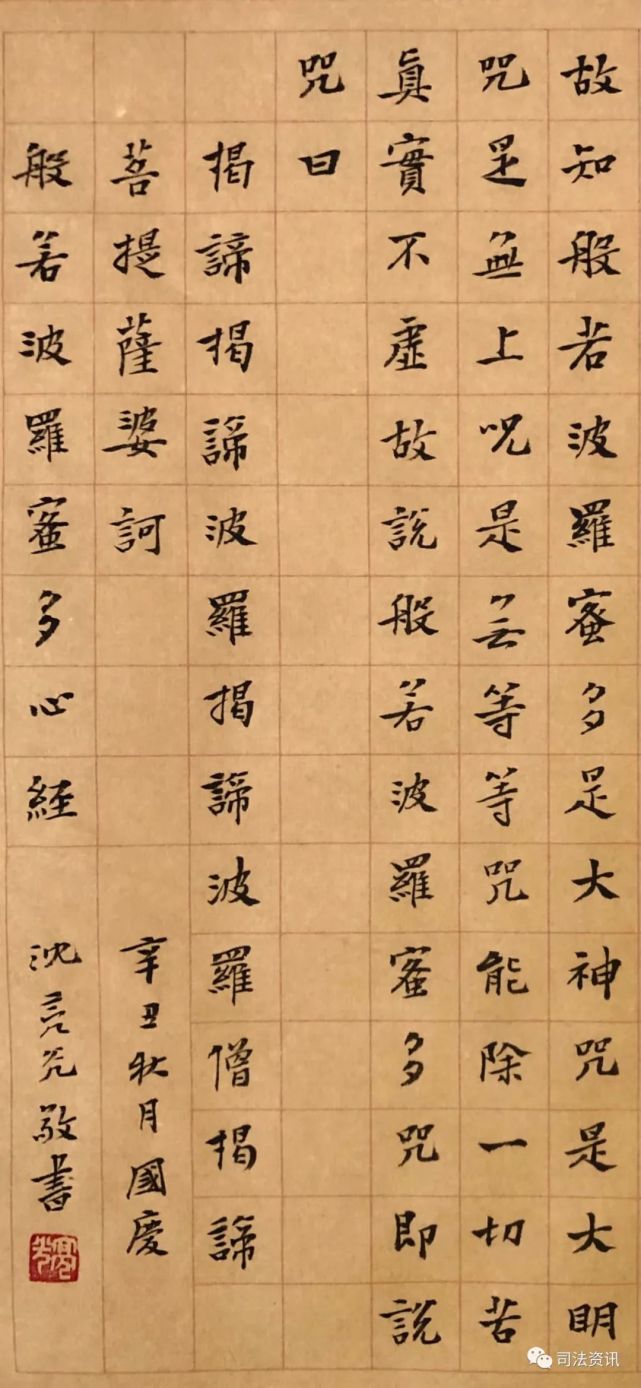 故知般若波羅蜜多是大神咒是大明
咒是無上呪是无等等咒能除一切苦
眞實不虛故說般若波羅蜜多咒即說
咒曰
揭諦揭諦波羅揭諦波羅僧揭諦
菩提薩婆訶
辛丑秋月國慶
般若波羅蜜多心経
沈亮光敬書
司法资讯